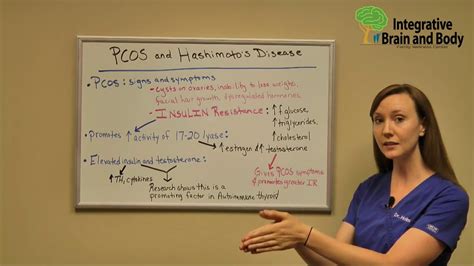 Integrative
Brain and Body
Family Wellness Center
PCOS and Hashimoto's Disease
• PCOS: signs and symptoms
- Cysts on ovaries, inability to lose weight,
facial hair growth, dysregulated hormones
- INSULIN Resistance:
↑ glucose
↑ triglycerides
↑ cholesterol
• Promotes ↑ activity of 17-20 lyase:
↑ estrogen / testosterone
• Elevated insulin and testosterone:
↑ TH, cytokines
Research shows this is a
promoting factor in Autoimmune thyroid
Gives PCOS symptoms
& promotes greater IR
Dr. Helen